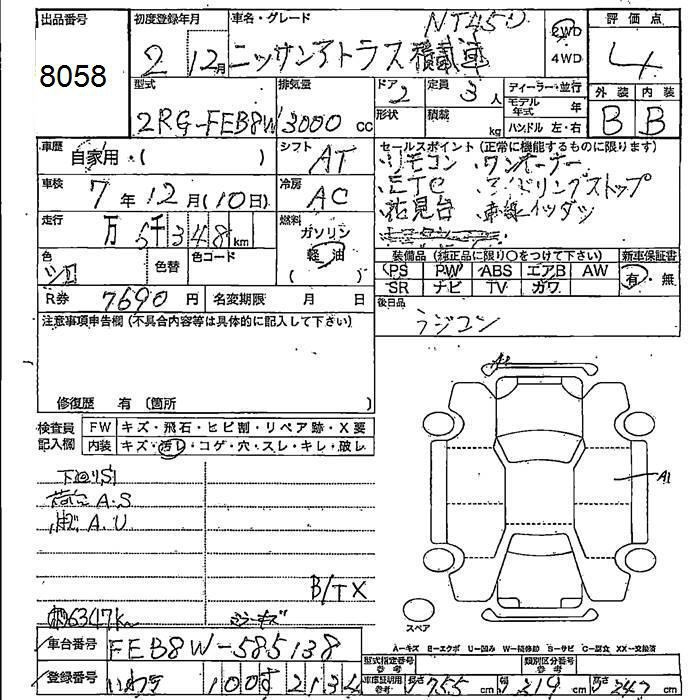 出品番号
8058
初度登録年月
2 12月
車名・グレード
NT450
ニッサンアトラス 積載車
2WD
4WD
評価点
4
型式
2RG-FEB8W
排気量
3000 cc
ドア
2
定員
3人
形状
積載
kg
ディーラー・並行
モデル年式 年
ハンドル 左・右
外装 内装
B B
車歴
自家用・( )
シフト
AT
車検
7年12月(10日)
冷房
AC
走行
万 5千348 km
燃料
ガソリン
軽油
( )
色
シロ
色替
色コード
R券 7690円
名変期限 月 日
セールスポイント(正常に機能するものに限ります)
・リモコン ・ワンオーナー
・ETC ・アイドリングストップ
・花見台
装備品(純正品に限り○をつけて下さい) 新車保証書
PS PW ABS エアB AW
SR ナビ TV カワ
有・無
後日品
ラジコン
注意事項申告欄(不具合内容等は具体的に記入して下さい)
修復歴 有(箇所 )
検査員記入欄
FW キズ・飛石・ヒビ割・リペア跡・X要
内装 キズ・汚レ・コゲ・穴・スレ・キレ・破レ
下回りS1
荷台 A.S
A.U
B/TX
6347k
ミラーキズ
A1
A1
スペア
A―キズ E―エクボ U―凹み W―補修跡 S―サビ C―腐食 XX―交換済
車台番号 FEB8W-585138
登録番号 いわき 100す2134
型式指定番号 参考
類別区分番号 参考
車庫証明用 参考
長さ 755 cm 幅 219 cm 高さ 247 cm